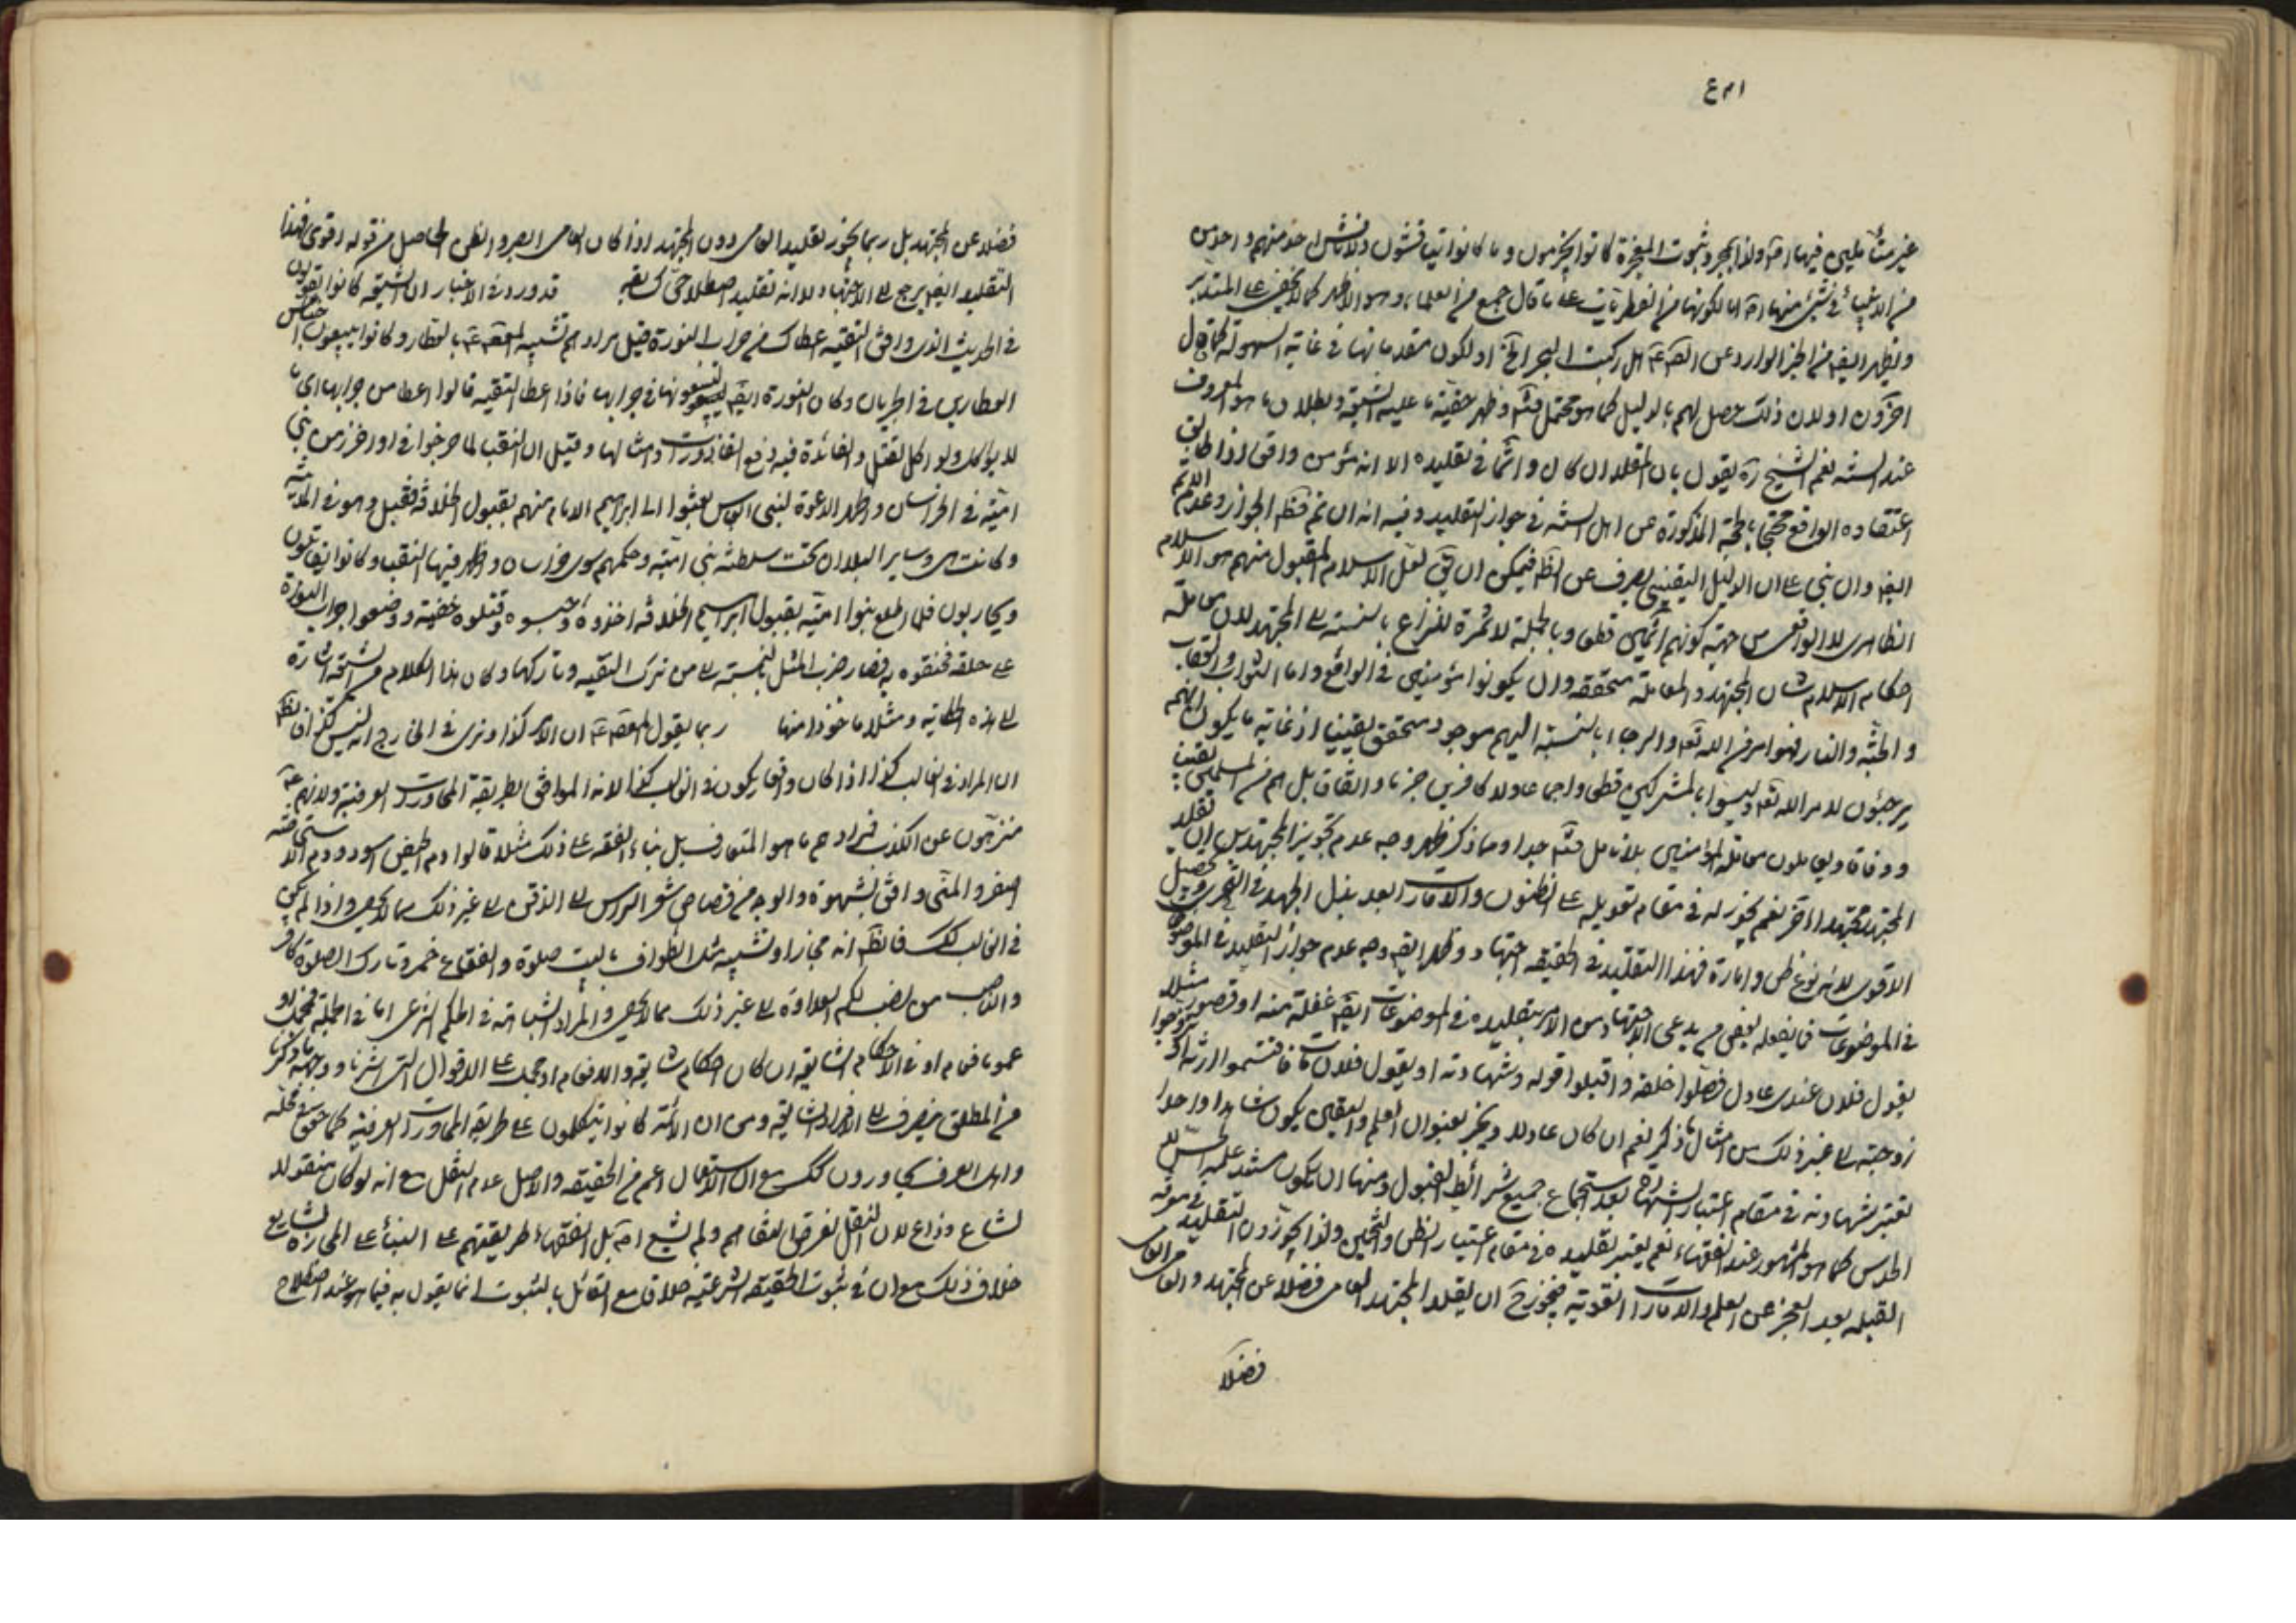 غير متأملين فيها اصلا ولذا بمجرد ثبوت المعجزة كانوا يجزمون وما كانوا يناقشون
من الاغبياء في شيء منها اصلا اما لكونها من الفطريات على ما قال جمع من العلماء وهو الاظهر كما لا يخفى على المتدبر
ويظهر ايضا من الخبر الوارد عن الصم عم هل ركبت البحر الخ او لكون مقدماتها في غاية السهولة كما قال
اخرون او لان ذلك حصل لهم بالدليل كما هو محتمل فتم وظهر حقية ما عليه الشيعة وبطلان ما هو المعروف
عند السنة نعم الشيخ ره يقول بان المقلد ان كان واثما في تقليده الا انه مؤمن واقعا اذا طابق
اعتقاده الواقع محتجا بالحجة المذكورة من اهل السنة في جواز التقليد وفيه انه ان تم فتم الجواز وعدم الاثم
ايضا وان بنى على ان الدليل اليقيني يصرف عن الظ فيمكن ان يق لعل الاسلام المقبول منهم هو الاسلام
الظاهري لا الواقعي من جهة كونهم اثمين قطعا وبالجملة لا ثمرة للنزاع بالنسبة الى المجتهد لان معاملة
احكام الاسلام شان المجتهد والمعاملة متحققة وان يكونوا مؤمنين في الواقع واما الثواب والعقاب
والجنة والنار فهو امر من الله تع والرجاء بالنسبة اليهم موجود متحقق يقينا اذ غاية ما يكون انهم
يرجئون لامر الله تع وليسوا بالمشركين قطعا واجماعا ولا كافرين جزما واتفاقا بل هم من المسلمين يقينا
ووفاقا ويعاملون معاملة المؤمنين بلا تامل فتم جدا ومما ذكر ظهر وجه عدم تجويز المجتهدين ان تقليد
المجتهد مجتهدا اخر نعم يجوز له في مقام تعويله على الظنون والامارات بعد بذل الجهد في التحري وتحصيل
الاقوى لانه نوع ظن وامارة فهذا التقليد في الحقيقة اجتهاد وظهر ايضا وجه عدم جواز التقليد في الموضوعات
في الموضوعات فما يفعله بعض من يدعى الاجتهاد من الامر بتقليده في الموضوعات ايضا غفلة منه او قصور مثلا
يقول فلان عندي عادل فصلوا خلفه واقبلوا قوله وشهادته او يقول فلان مات فاقتسموا ارثه او تزوجوا
زوجته الى غير ذلك من امثال ما ذكر نعم ان كان عادلا ويخبر بعنوان العلم واليقين يكون شاهدا واحدا
تعتبر شهادته في مقام اعتبار الشهادة بعد استجماع جميع شرائط القبول ومنها ان يكون مستند علمه الحس لا
الحدس كما هو المشهور عند الفقهاء نعم يعتبر تقليده في مقام اعتبار الظن والتخمين ولذا يجوزون التقليد في معرفة
القبلة بعد العجز عن العلم والامارات القوية فيجوز ح ان يقلد المجتهد العامي فضلا عن المجتهد والعامي العامي
فضلا
فضلا عن المجتهد بل ربما يجوز تقليد العامي دون المجتهد اذا كان العامي ابصر والظن الحاصل من قوله اقوى فهذا
التقليد ايضا يرجع الى الاجتهاد لا انه تقليد اصطلاحي قد ورد في الاخبار ان الشيعة كانوا يقولون
في الحديث الذي وافق التقية اعطاك من جراب النورة قيل مرادهم تشبيه المعصوم عم بالعطار وكانوا يبيعون اجناس
العطارين في الجربان وكان النورة ايضا يبيعونها في جرابها فاذا اعطى التقية قالوا اعطاه من جرابها اي ما
لا يؤكل ولو اكل لقتل والفائدة فيه دفع القاذورات وامثالها وقيل ان النقباء لما خرجوا في اواخر زمن بني
امية في الخراسان واظهروا الدعوة لبني العباس بعثوا الى ابراهيم الامام منهم بقبول الخلافة فقبل وهو في المدينة
وكانت هي وساير البلدان تحت سلطنة بني امية وحكمهم سوى خراسان وظهر فيها النقباء وكانوا يقاتلون
ويحاربون فلما اطلع بنو امية بقبول ابراهيم الخلافة اخذوه وحبسوه وقتلوه خفية ووضعوا جراب النورة
على حلقه فخنقوه به فصار ضرب المثل بالنسبة الى من ترك التقية وتاركها وكان هذا الكلام من الشيعة اشارة
الى هذه الحكاية ومثلا ماخوذا منها ربما يقول المعصوم عم ان الامر كذا ونرى في الخارج انه ليس كذا فالظ
ان المراد في الغالب كذا اذا كان واقعا يكون في الغالب كذا لانه الموافق لطريقة المحاورات العرفية ولانهم عم
منزهون عن الكذب فمرادهم ما هو المتعارف بل بناء الفقه على ذلك مثلا قالوا دم الحيض اسود ودم الاستحاضة
اصفر والمنى دافق بشهوة والوجه من قصاص شعر الراس الى الذقن الى غير ذلك مما لا يحصى واذا لم يكن
في الغالب كك فالظ انه مجاز او تشبيه مثل الطواف بالبيت صلوة والفقاع خمر وتارك الصلوة كافر
والناصب من نصب لكم العداوة الى غير ذلك مما لا يحصى والمراد المشابهة في الحكم الشرعي اما في الجملة فمجمل او
عموما فعام او في الاحكام الشايعة ان كان احكام شايعة والا فعام او مجمل على الاقوال التي اشرنا ووجهه ما ذكرنا
من المطلق ينصرف الى الافراد الشايعة ومن ان الائمة كانوا يتكلمون على طريقة المحاورات العرفية كما حقق في محله
واهل العرف يحاورون كك مع ان الاستعمال اعم من الحقيقة والاصل عدم النقل مع انه لو كان منقولا
لشاع وذاع لان النقل لغرض التفاهم ولم يشع اصلا بل الفقهاء طريقتهم على البناء على المجاز والشايع
خلاف ذلك مع ان في ثبوت الحقيقة الشرعية خلافا مع القائل بالثبوت انما يقول به فيما هو عند اصطلاح